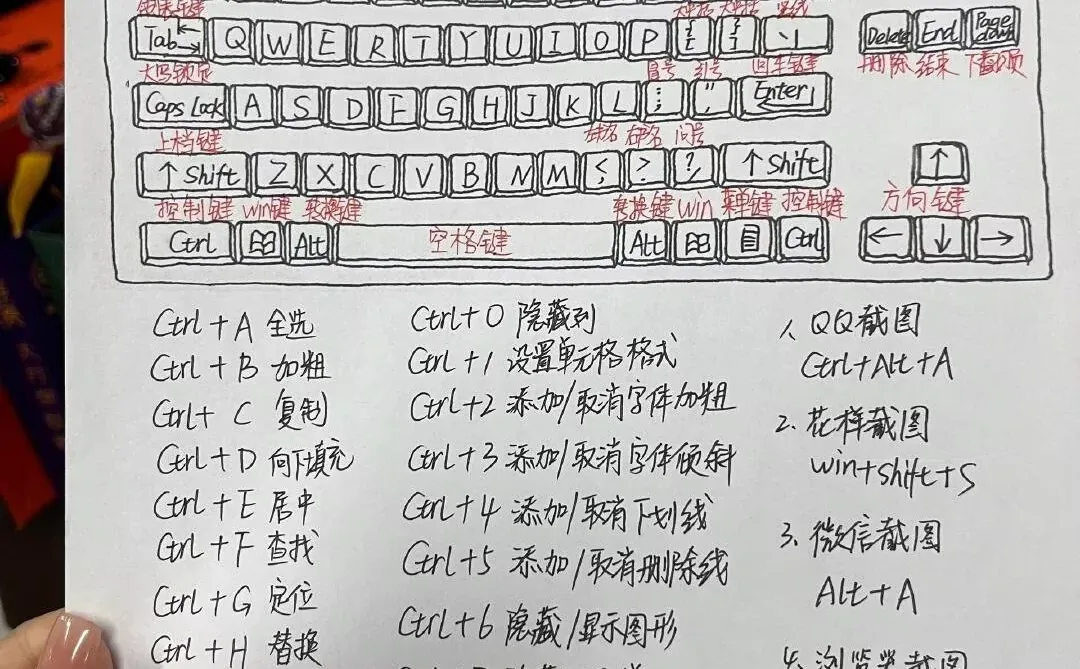 Tab Q W E R T Y U I O P { [ } ] \ Delete End Page down
大写锁定 冒号 引号 回车键 删除 结束 下翻页
Caps Lock A S D F G H J K L : ; " ' Enter
上档键 问号
↑ Shift Z X C V B N M < , > . ? / ↑ Shift ↑
控制键 win键 转换键 转换键 win 菜单键 控制键 方向键
Ctrl Alt 空格键 Alt Ctrl ← ↓ →
Ctrl + A 全选
Ctrl + B 加粗
Ctrl + C 复制
Ctrl + D 向下填充
Ctrl + E 居中
Ctrl + F 查找
Ctrl + G 定位
Ctrl + H 替换
Ctrl + 0 隐藏列
Ctrl + 1 设置单元格格式
Ctrl + 2 添加/取消字体加粗
Ctrl + 3 添加/取消字体倾斜
Ctrl + 4 添加/取消下划线
Ctrl + 5 添加/取消删除线
Ctrl + 6 隐藏/显示图形
1、QQ截图
Ctrl+Alt+A
2、花样截图
win+shift+S
3、微信截图
Alt+A
4、浏览器截图